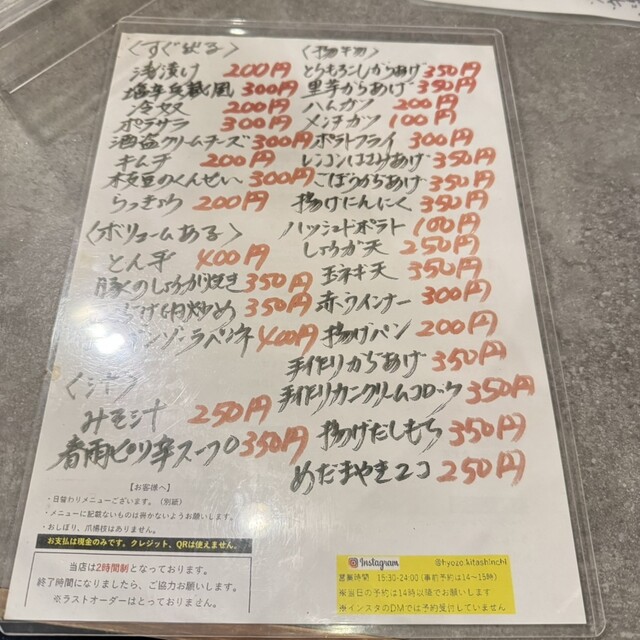 〈すぐ出る〉
浅漬け 200円
塩辛 300円
冷奴 200円
ポテサラ 300円
酒盗クリームチーズ 300円
キムチ 200円
枝豆のくんせい 300円
らっきょう 200円
〈ボリュームある〉
とん平 400円
豚のしょうが焼き 350円
炒め 350円
400円
〈汁〉
みそ汁 250円
春雨ピリ辛スープ 350円
〈揚物〉
とうもろこしからあげ 350円
里芋からあげ 350円
ハムカツ 200円
メンチカツ 100円
ポテトフライ 300円
レンコンはさみあげ 350円
ごぼうからあげ 350円
揚げにんにく 350円
ハッシュドポテト 100円
しょうが天 250円
玉ネギ天 350円
赤ウインナー 300円
揚げパン 200円
手作りからあげ 350円
手作りカニクリームコロッケ 350円
揚げだしもち 350円
めだまやき2コ 250円
【お客様へ】
・日替わりメニューございます。（別紙）
・メニューに記載ないものは何かないようお願いします。
・おしぼり、爪楊枝はありません。
お支払は現金のみです。クレジット、QRは使えません。
当店は2時間制となっております。
終了時間になりましたら、ご協力お願いします。
※ラストオーダーはとっておりません。
Instagram @hyozo.kitashinchi
営業時間 15:30-24:00 (事前予約は14～15時)
※当日の予約は14時以降でお願いします
※インスタのDMでは予約受付していません